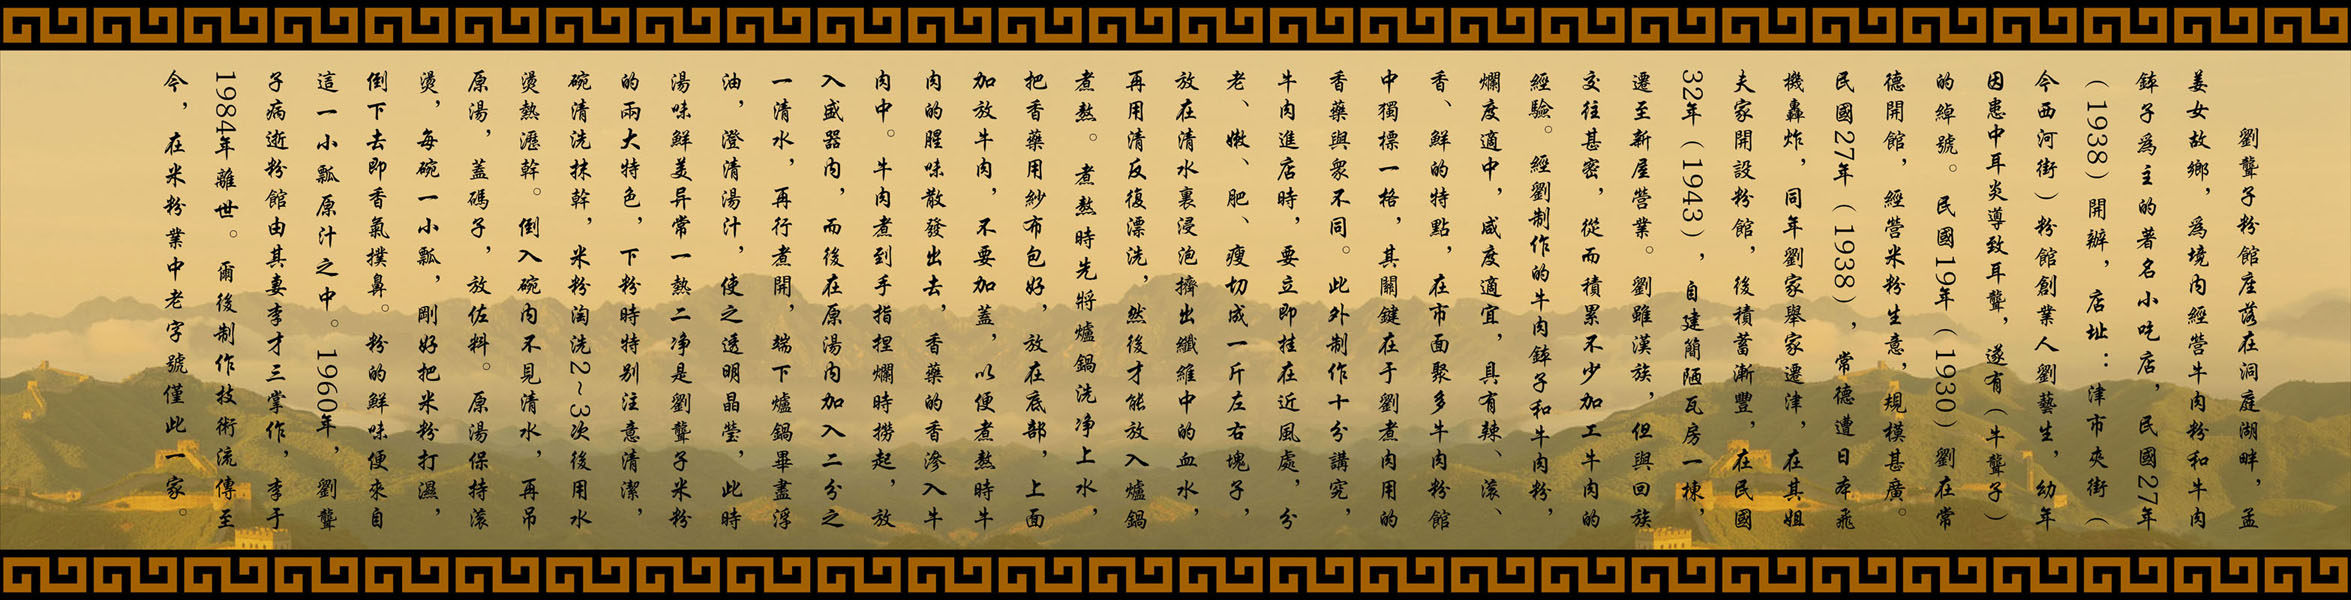 劉聾子粉館座落在洞庭湖畔，孟
姜女故鄉，爲境内經營牛肉粉和牛肉
鉢子爲主的著名小吃店，民國27年
（1938）開辦，店址：津市夾街（
今西河街）粉館創業人劉藝生，幼年
因患中耳炎導致耳聾，遂有（牛聾子）
的綽號。民國19年（1930）劉在常
德開館，經營米粉生意，規模甚廣。
民國27年（1938），常德遭日本飛
機轟炸，同年劉家舉家遷津，在其姐
夫家開設粉館，後積蓄漸豐，在民國
32年（1943），自建簡陋瓦房一棟，
遷至新屋營業。劉雖漢族，但與回族
交往甚密，從而積累不少加工牛肉的
經驗。經劉制作的牛肉鉢子和牛肉粉，
爛度適中，咸度適宜，具有辣、滚、
香、鮮的特點，在市面聚多牛肉粉館
中獨標一格，其關鍵在于劉煮肉用的
香藥與衆不同。此外制作十分講究，
牛肉進店時，要立即挂在近風處，分
老、嫩、肥、瘦切成一斤左右塊子，
放在清水裏浸泡擠出纖維中的血水，
再用清反復漂洗，然後才能放入爐鍋
煮熬。煮熬時先將爐鍋洗净上水，
把香藥用紗布包好，放在底部，上面
加放牛肉，不要加蓋，以便煮熬時牛
肉的腥味散發出去，香藥的香滲入牛
肉中。牛肉煮到手指捏爛時撈起，放
入盛器内，而後在原湯内加入二分之
一清水，再行煮開，端下爐鍋畢盡浮
油，澄清湯汁，使之透明晶瑩，此時
湯味鮮美异常一熱二净是劉聾子米粉
的兩大特色，下粉時特别注意清潔，
碗清洗抹幹，米粉淘洗2~3次後用水
燙熱瀝幹。倒入碗内不見清水，再吊
原湯，蓋碼子，放佐料。原湯保持滚
燙，每碗一小瓢，剛好把米粉打濕，
倒下去即香氣撲鼻。粉的鮮味便來自
這一小瓢原汁之中。1960年，劉聾
子病逝粉館由其妻李才三掌作，李于
1984年離世。爾後制作技術流傳至
今，在米粉業中老字號僅此一家。